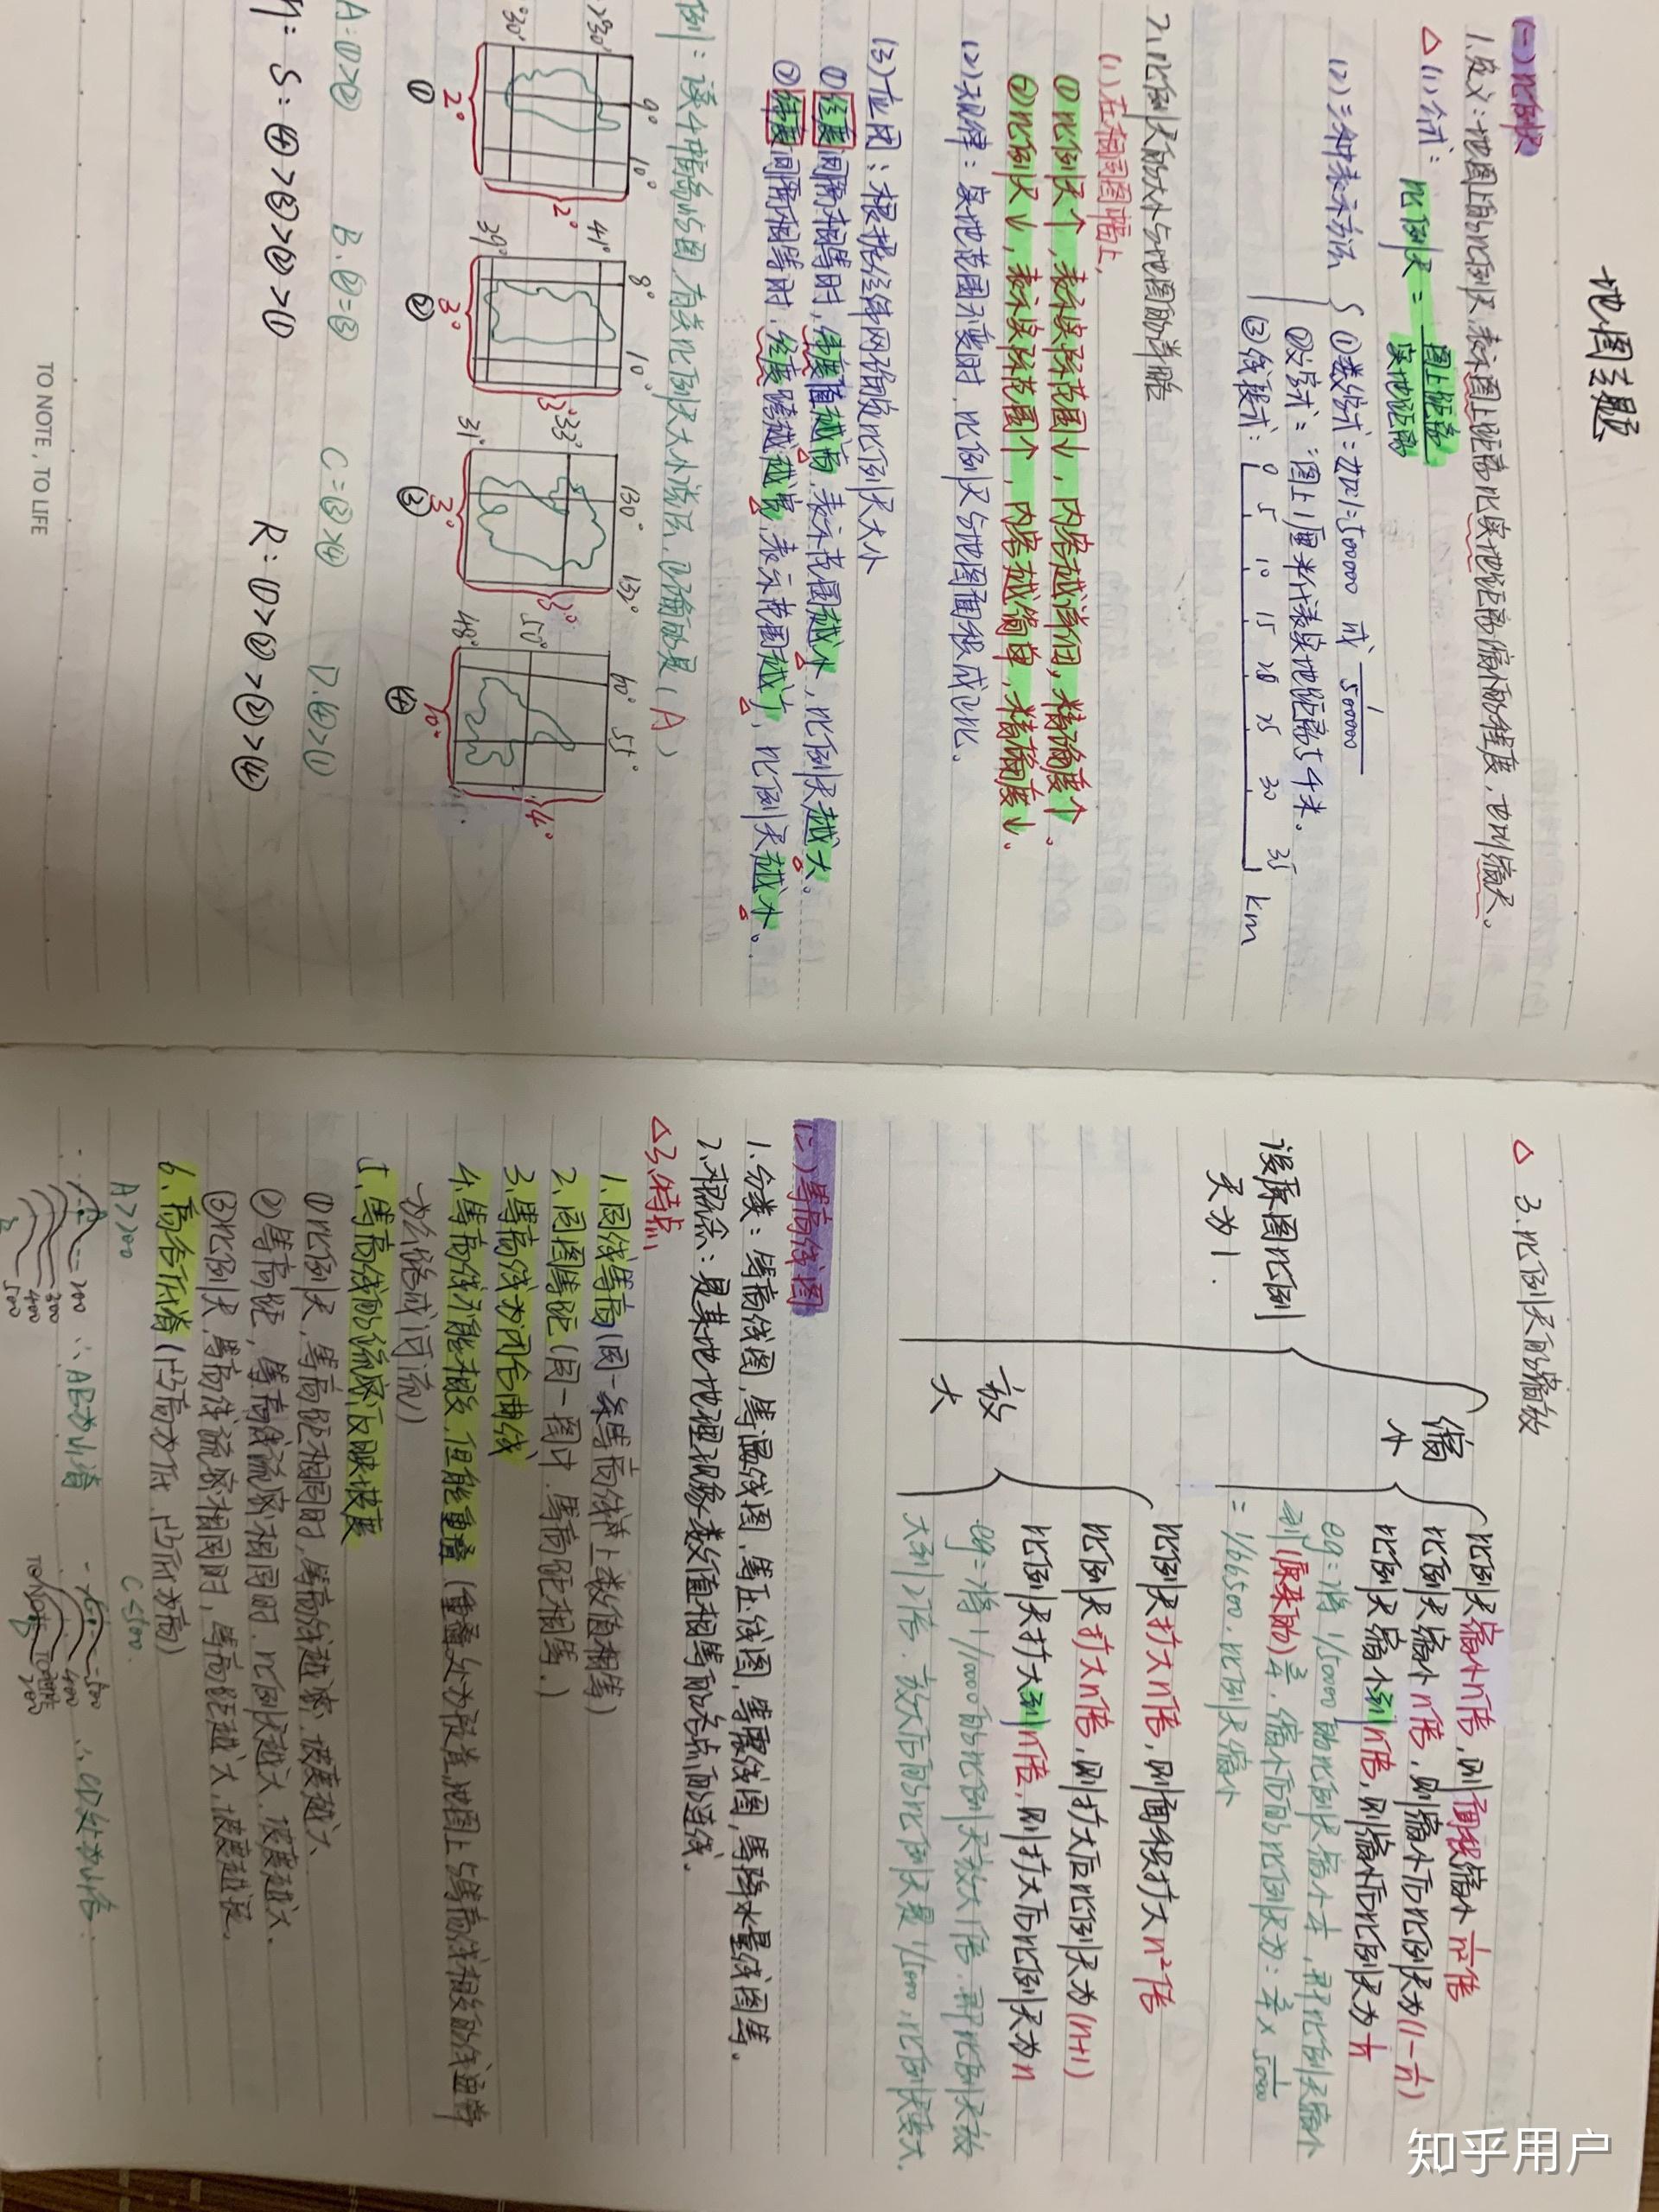 地图专题
(一)比例尺
1.定义:地图上的比例尺,表示图上距离比实地距离缩小的程度,也叫缩尺。
△(1)公式:比例尺=图上距离/实地距离
(2)三种表示方法
①数字式:如1:500000 或 1/500000
②文字式:"图上1厘米代表实地距离5千米。
③线段式:0 5 10 15 20 25 30 35 km
2.比例尺的大小与地图的详略
(1)在相同图幅上,
①比例尺↑,表示实际范围↓,内容越详细,精确度↑。
②比例尺↓,表示实际范围↑,内容越简单,精确度↓。
(2)规律:实地范围不变时,比例尺与地图面积成正比.
(3)应用:根据经纬网确定比例尺大小
①经度间隔相等时,纬度值越高,表示范围越小,比例尺越大。
②纬度间隔相等时,经度跨越越大,表示范围越广,比例尺越小。
例:读4中幅角的图,有关比例尺大小说法,正确的是(A)
9° 10° 30° 2° 2° ①
8° 10° 41° 39° 3° 3° ②
130° 132° 33° 31° 3° 3° ③
60° 55° 50° 48° 10° 4° ④
A:①>② B.②=③ C:③>④ D.④>①
S:④>③>②>① R:①>③>②>④
TO NOTE , TO LIFE
△ 3.比例尺的缩放
设原图比例尺为1.
缩小
比例尺缩小n倍,则面积缩小1/n²倍
比例尺缩小n倍,则缩小后比例尺为(1-1/n)
比例尺缩小到n倍,则缩小后比例尺为1/n
=1/66500,比例尺缩小
放大
比例尺扩大n倍,则面积扩大n²倍
比例尺扩大n倍,则扩大后比例尺为(n+1)
比例尺扩大到n倍,则扩大后比例尺为n
eg=将1/10000的比例尺放大1倍,即比例尺放
大到2倍.放大后的比例尺是1/5000,比例尺变大.
(二)等高线图
1.分类:等高线图,等温线图,等压线图,等震线图,等降水量线图等。
2.概念:是某地地理现象数值相等的各点的连线.
△3.特点
1.同线等高(同一条等高线上数值相等)
2.同图等距(同一图中.等高距相等.)
3.等高线为闭合曲线
4.等高线不能相交,但能重叠(重叠处为陡崖,地图上与等高线相交的线通常
为公路或河流)
5.等高线的疏密反映坡度
①比例尺,等高距相同时,等高线越密,坡度越大
②等高距,等高线疏密相同时,比例尺越大,坡度越大.
③比例尺,等高线疏密相同时,等高距越大,坡度越陡.
6.高合低脊(凸高为低.凸低为高)
A>200
200
300
400
500
∴AB为山脊
C<500.
500
400
200
∴CD处为山谷.
知乎用户